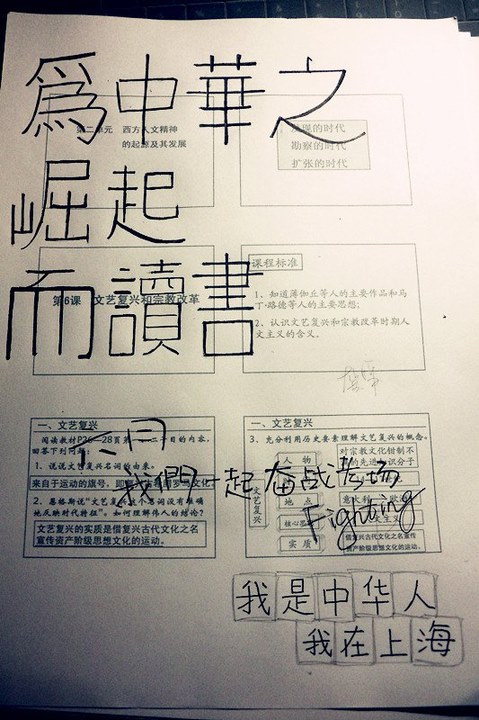 為中華之
崛起
而讀書
第二单元 西方人文精神
的起源及其发展
发现的时代
勘察的时代
扩张的时代
第6课 文艺复兴和宗教改革
课程标准
1、知道薄伽丘等人的主要作品和马
丁·路德等人的主要思想;
2、认识文艺复兴和宗教改革时期人
文主义的含义。
一、文艺复兴
阅读教材P26—28页第一、二子目的内容,
回答下列问题:
1、说说文艺复兴名词的由来。
来自于运动的旗号,即
2、恩格斯说"文艺复兴
地反映时代特征"。如何理解伟人的结论?
文艺复兴的实质是借复兴古代文化之名
宣传资产阶级思想文化的运动。
一、文艺复兴
3、充分利用历史要素理解文艺复兴的概念。
人 物
对宗教文化钳制不
的先进知识分子
文艺复兴
地 点
意大利
核心思
实 质
借复兴古代文化之名宣传
资产阶级思想文化的运动。
我們一起奋战考场
Fighting
我是中华人
我在上海